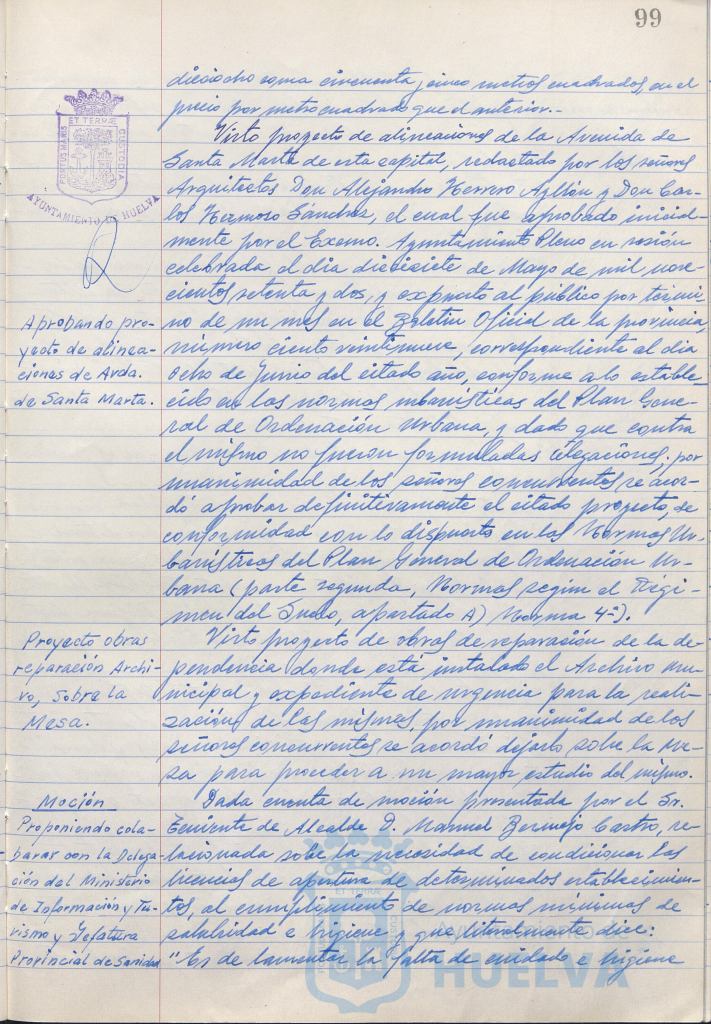 99
dieciocho coma cincuenta y cinco metros cuadrados, en el
precio por metro cuadrado que el anterior.-
PORTUS MARIS
ET TERRAE
CUSTODIA
AYUNTAMIENTO DE HUELVA
Visto proyecto de alineaciones de la Avenida de
Santa Marta de esta capital, redactado por los señores
Arquitectos Don Alejandro Herrero Ayllón y Don Car-
los Hermoso Sánchez, el cual que aprobado inicial-
mente por el Excmo. Ayuntamiento Pleno en sesión
celebrada el día diecisiete de Mayo de mil nove-
cientos setenta y dos, y expuesto al público por térmi-
no de un mes en el Boletín Oficial de la provincia,
número ciento veintinueve, correspondiente al día
ocho de Junio del citado año, conforme a lo estable-
cido en las normas urbanísticas del Plan Gene-
ral de Ordenación Urbana, y dado que contra
el mismo no fueron formuladas alegaciones; por
unanimidad de los señores concurrentes se acor-
dó aprobar definitivamente el citado proyecto, de
conformidad con lo dispuesto en las Normas Ur-
banísticas del Plan General de Ordenación Ur-
bana (parte segunda, Normas según el Régi-
men del Suelo, apartado A) Norma 4ª).
Aprobando pro-
yecto de alinea-
ciones de Avda.
de Santa Marta.
Visto proyecto de obras de reparación de la de-
pendencia donde está instalado el Archivo Mu-
nicipal y expediente de urgencia para la reali-
zación de las mismas, por unanimidad de los
señores concurrentes se acordó dejarlo sobre la me-
sa para proceder a un mayor estudio del mismo.
Proyecto obras
reparación Archi-
vo, Sobre la
Mesa.
Dada cuenta de moción presentada por el Sr.
Teniente de Alcalde D. Manuel Bermejo Castro, re-
lacionada sobre la necesidad de condicionar las
licencias de apertura de determinados establecimien-
tos, al cumplimiento de normas mínimas de
salubridad e higiene y que literalmente dice:
"Es de lamentar la falta de cuidado e higiene
Moción
Proponiendo cola-
borar con la Delega-
ción del Ministerio
de Información y Tu-
rismo y Jefatura
Provincial de Sanidad
HUELVA